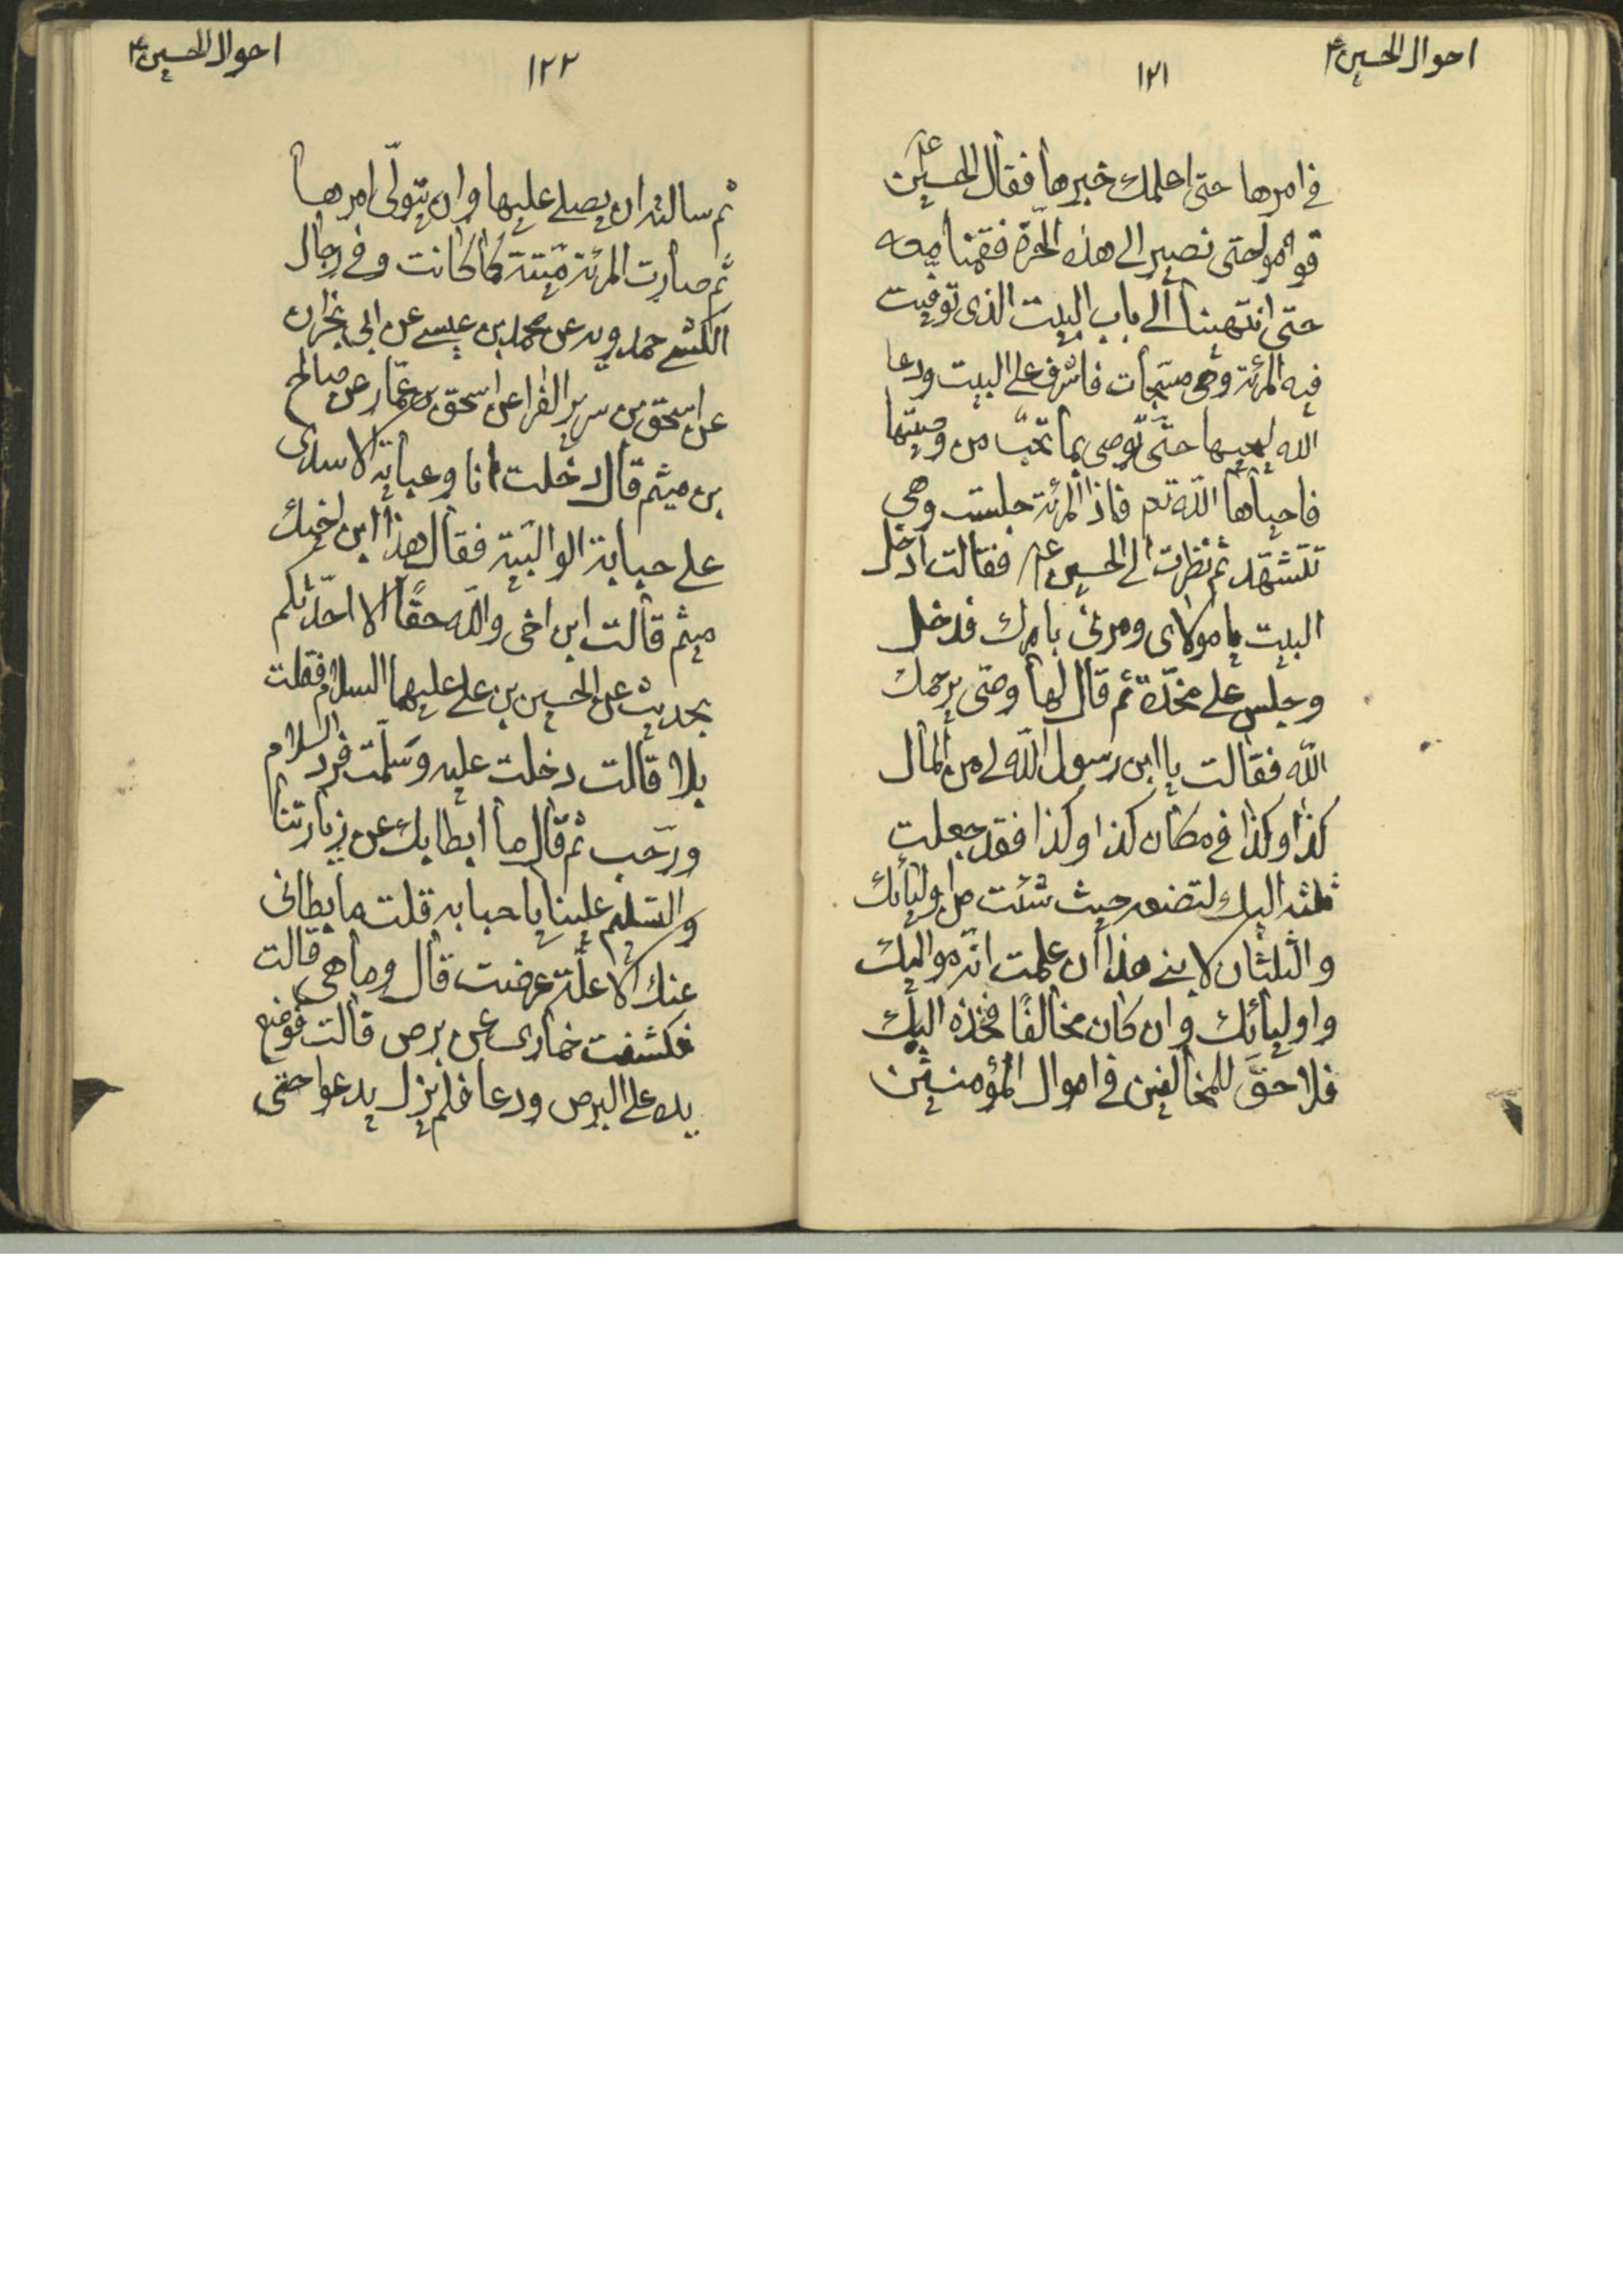 احوال الحسین ع
۱۲۱
فی امرها حتی اعلمک خبرها فقال الحسین ع
قوموا حتی نصیر الی هذه الحرّة فقمنا معه
حتی انتهینا الی باب البیت الذی توفیت
فیه المرئة وهی مسجّات فاشرف علی البیت ودعا
الله لیحییها حتّی توصی بما تحبّ من وصیّتها
فاحیاها اللّه تع فاذا المرئة جلست وهی
تتشهّد ثم نظرت الی الحسین ع فقالت ادخل
البیت یا مولای ومرنی بامرک فدخل
وجلس علی مخدّة ثم قال لها وصّی یرحمک
اللّه فقالت یا ابن رسول اللّه لی من المال
کذا وکذا فی مکان کذا وکذا فقد جعلت
ثلثه الیک لتضعه حیث شئت من اولیائک
والثلثان لابنی هذا ان علمت انّه موالیک
واولیائک وان کان مخالفًا فخذه الیک
فلا حقّ للمخالفین فی اموال المؤمنین
احوال الحسین ع
۱۲۲
ثم سالته ان یصلی علیها وان یتولّی امرها
ثم صارت المرئة میّتة کما کانت وفی رجال
الکشی حمدویه عن محمد بن عیسی عن ابی نجران
عن اسحق بن سریر الفرا عن اسحق بن عمّار عن صالح
بن میثم قال دخلت انا وعبایة الاسدی
علی حبابة الوالبیة فقال هذا ابن اخیک
میثم قالت ابن اخی واللّه حقًا الا احدّثکم
بحدیث عن الحسین بن علی علیهما السلام فقلت
بلا قالت دخلت علیه وسلّمت فرد السلام
ورحّب ثم قال ما ابطا بک عن زیارتنا
والتسلیم علینا یا حبابه قلت ما بطانی
عنک الا علّة عرضت قال وما هی قالت
فکشفت خماری عن برص قالت فوضع
یده علی البرص ودعا فلم یزل یدعوا حتی